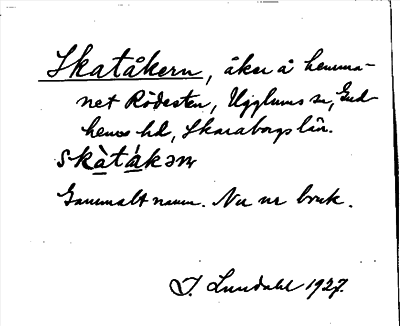 Skatåkern, åker å hemma-
net Rödesten, Ugglums sn, Gud-
hems hd, Skaraborgs län.
skàtákəṇ
Gammalt namn. Nu ur bruk.
J. Lundahl 1927.